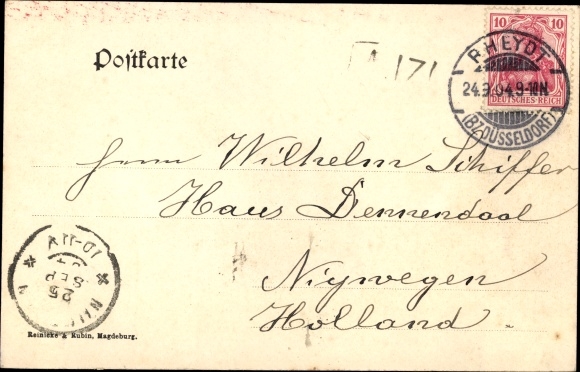 Postkarte
171
10 10
DEUTSCHES REICH
RHEYDT
24.9.04.9-10N
(BZ. DÜSSELDORF)
Herrn Wilhelm Schiffer
Haus Dennendaal
Nijwegen
Holland.
10-11V
25
SEP
Reinicke & Rubin, Magdeburg.